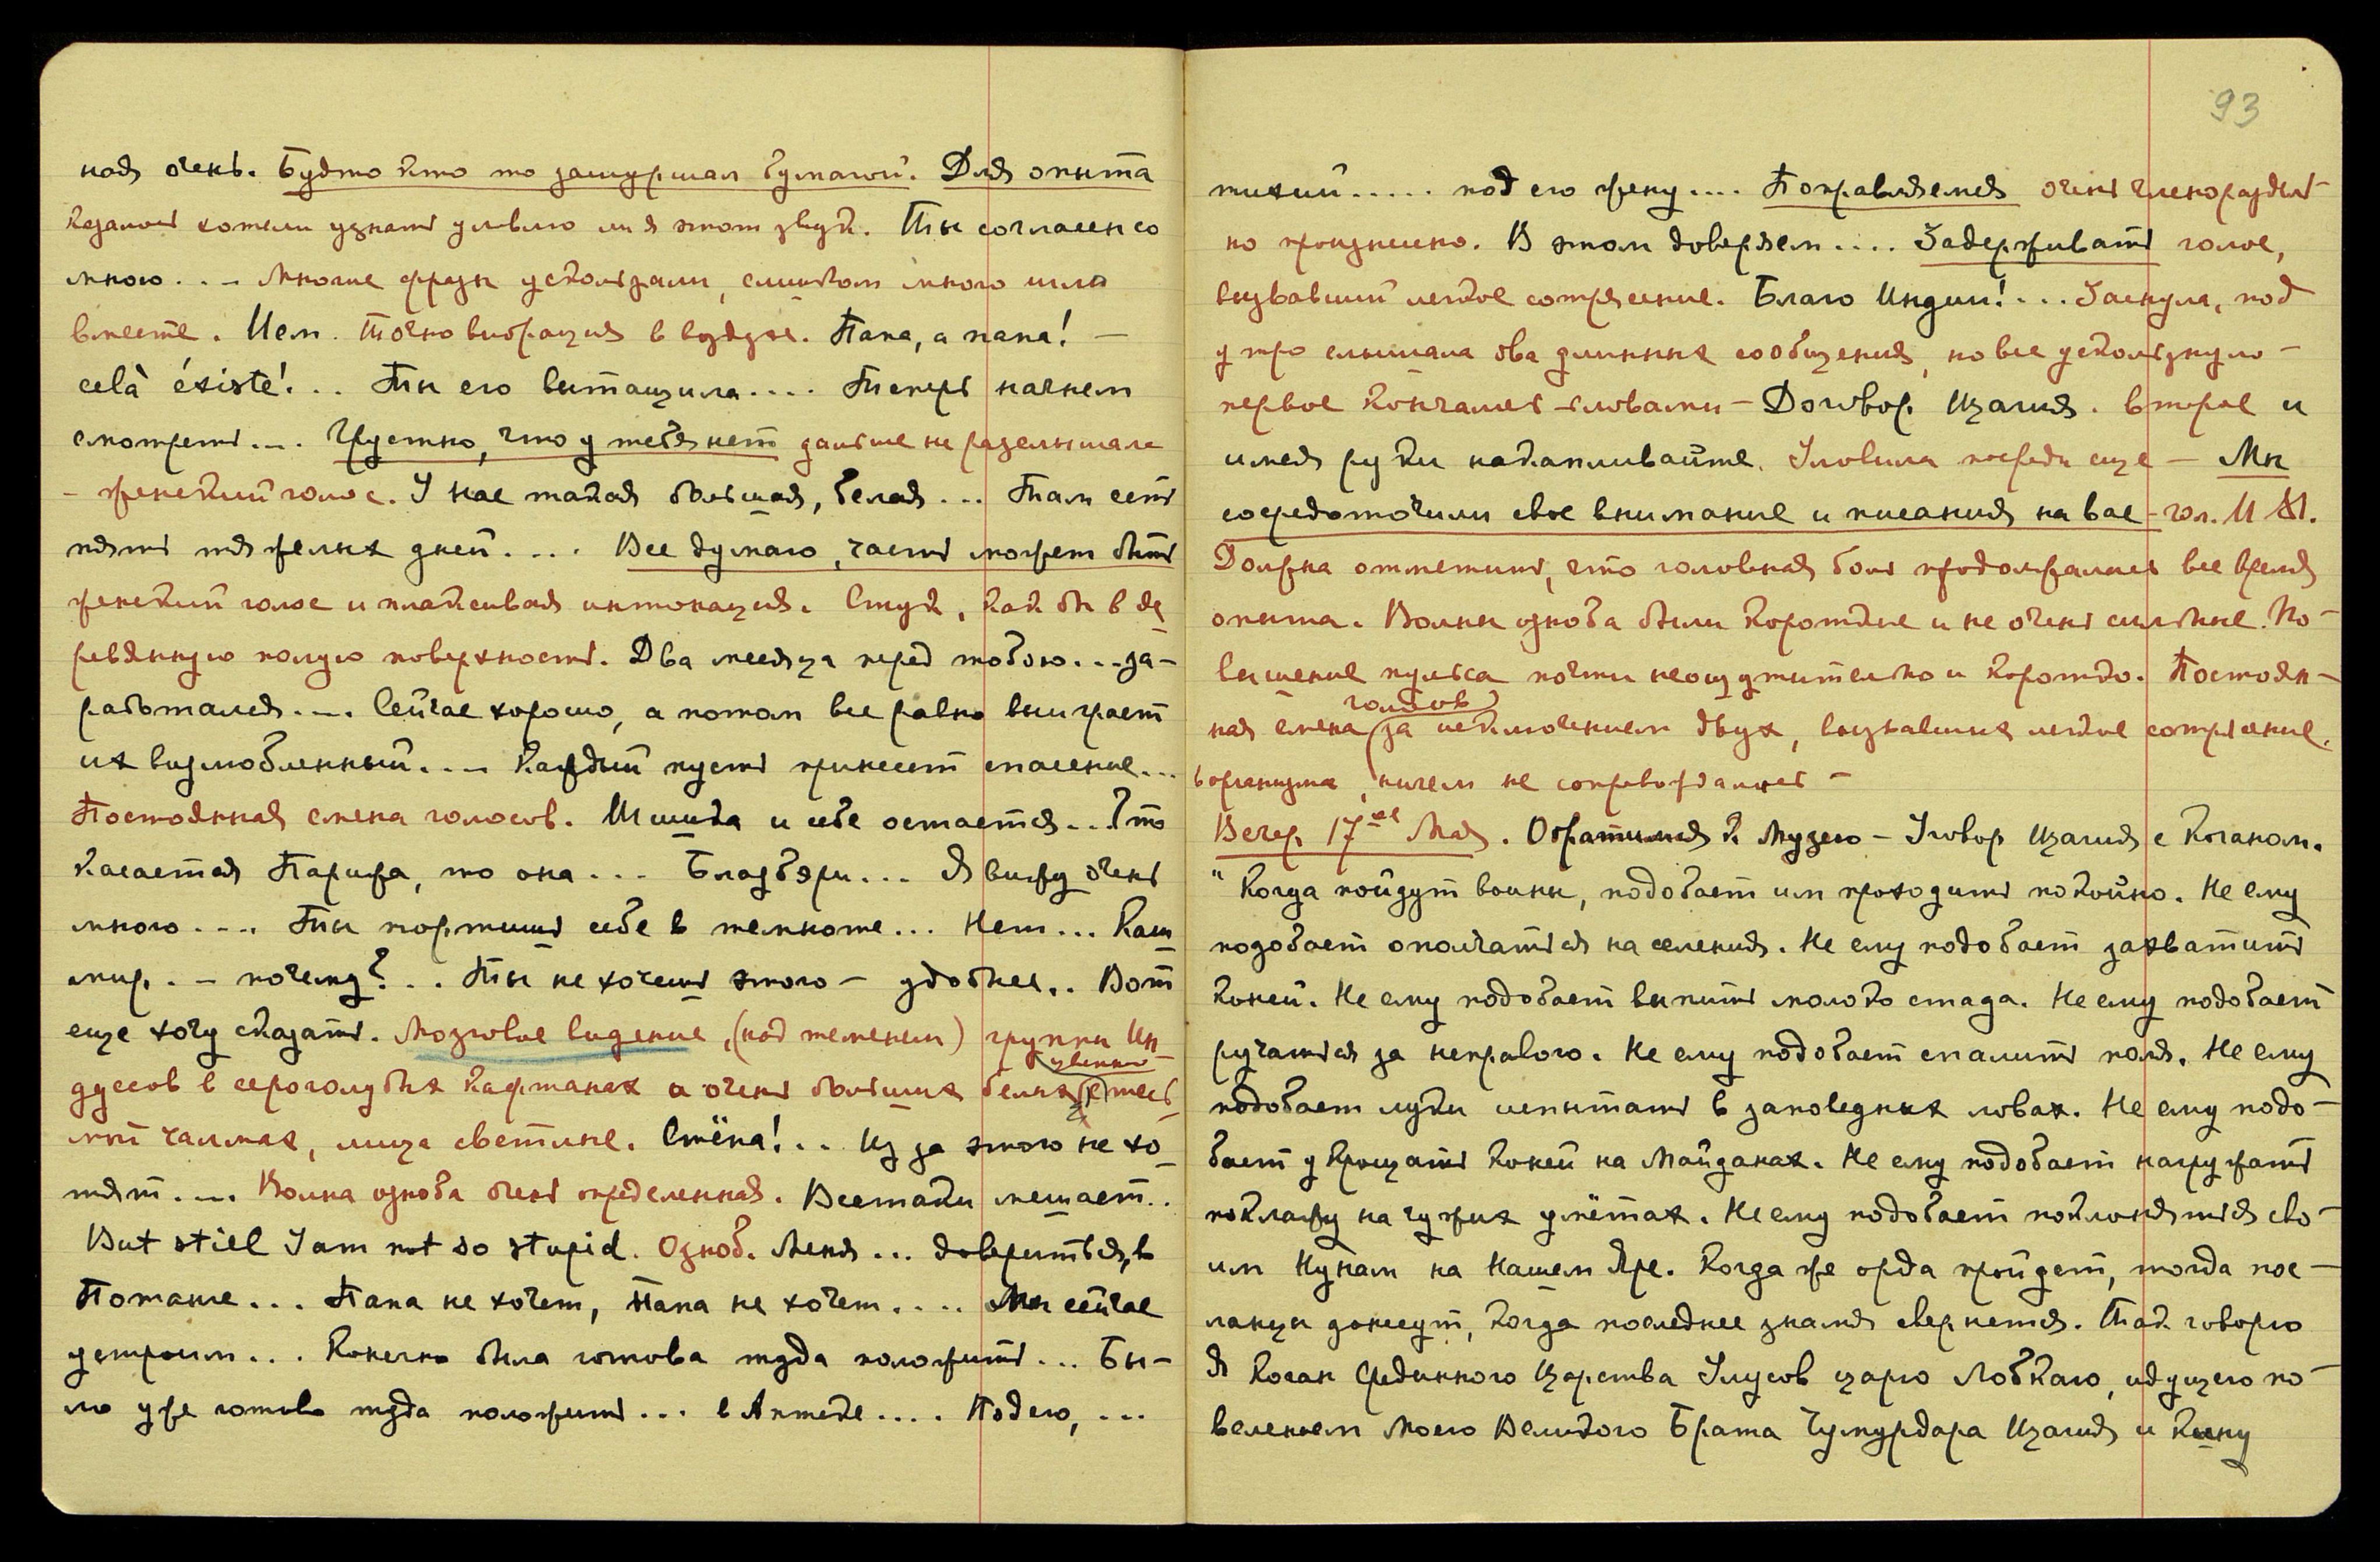 ная очень. Будто кто то зашуршал бумагой. Для опыта
казалось хотели узнать уловлю ли я этот звук. Ты согласен со
мною... Многие фразы ускользали, слишком много шло
вместе. Исм. Точно вибрация в воздухе. Папа, а папа! —
celà éxistè!.. Ты его вытащила.... Теперь начнем
смотреть... Грустно, что у тебя нет дальше не разслышала
- женский голос. У нас такая большая, белая... Там есть
пять тяжелых дней.... Все думаю, часть может быть
женский голос и плаксивая интонация. Стук, как бы в де
ревянную полую поверхность. Два месяца перед тобою...за-
работался... Сейчас хорошо, а потом все равно выиграет
их возлюбленный... Каждый пусть принесет спасение...
Постоянная смена голосов. Ишшка и себе остается... Что
касается Парижа, то она... Блазбэри... Я вижу очень
много.... Ты портишь себе в темноте... Нет... Каш
мир. - почему?.. Ты не хочешь этого — удобнее.. Вот
еще хочу сказать. Мозговое видение, (над теменем) группы Ин
дусов в сероголубых кафтанах и очень больших белых
чалмах, лица светлые. Стёпа!.. Из за этого не хо-
тят... Волна озноба очень определенная. Всетаки мешает..
But stiel I am not so stupid. Озноб. Меня... довериться, в
Потанье... Папа не хочет, Папа не хочет.... Мы сейчас
устроим... Конечно была готова туда положить... Бы-
ло уже готово туда положить... в Аптеке.... Подею, ...
93
тихий..... под его жену.... Поправляемся очень членораздель-
но произнесено. В этом доверяем.... Задерживать голос,
вызвавший легкое сотрясение. Благо Индии!... Заснула, под
утро слышала два длинных сообщения, но все ускользнуло —
первое кончалось словами — Договор Изагия. второе и
имея руки накапливайте. Уловила посреди еще — Мы
сосредоточили свое внимание и писания на вас - гол. М М.
Должна отметить, что головная боль продолжалась все время
опыта. Волны озноба были короткие и не очень сильные. По-
вышение пульса почти неощутительно и коротко. Постоян-
голосов
ная смена за исключением двух, вызвавших легкое сотрясение
в организме, ничем не сопровождалась —
Вечер 17-ое Мая. Обратимся к Музею — Уговор Изагия с Коганом.
" Когда пойдут воины, подобает им проходить покойно. Не ему
подобает ополчаться на селения. Не ему подобает захватить
коней. Не ему подобает выпить молоко стада. Не ему подобает
ручаться за неправого. Не ему подобает спалить поля. Не ему
подобает луки испытать в заповедных ловах. Не ему подо-
бает укрощать коней на Майданах. Не ему подобает нагружать
поклажу на чужих умётах. Не ему подобает поклоняться сво-
им Кунам на Нашем Яре. Когда же орда пройдет, тогда пос-
ланцы донесут, когда последнее знамя свернется. Так говорю
Я Коган Срединного Царства Улусов царю Лобкаго, идущего по-
веленьем Моего Великого Брата Чумурдара Изагия и кину